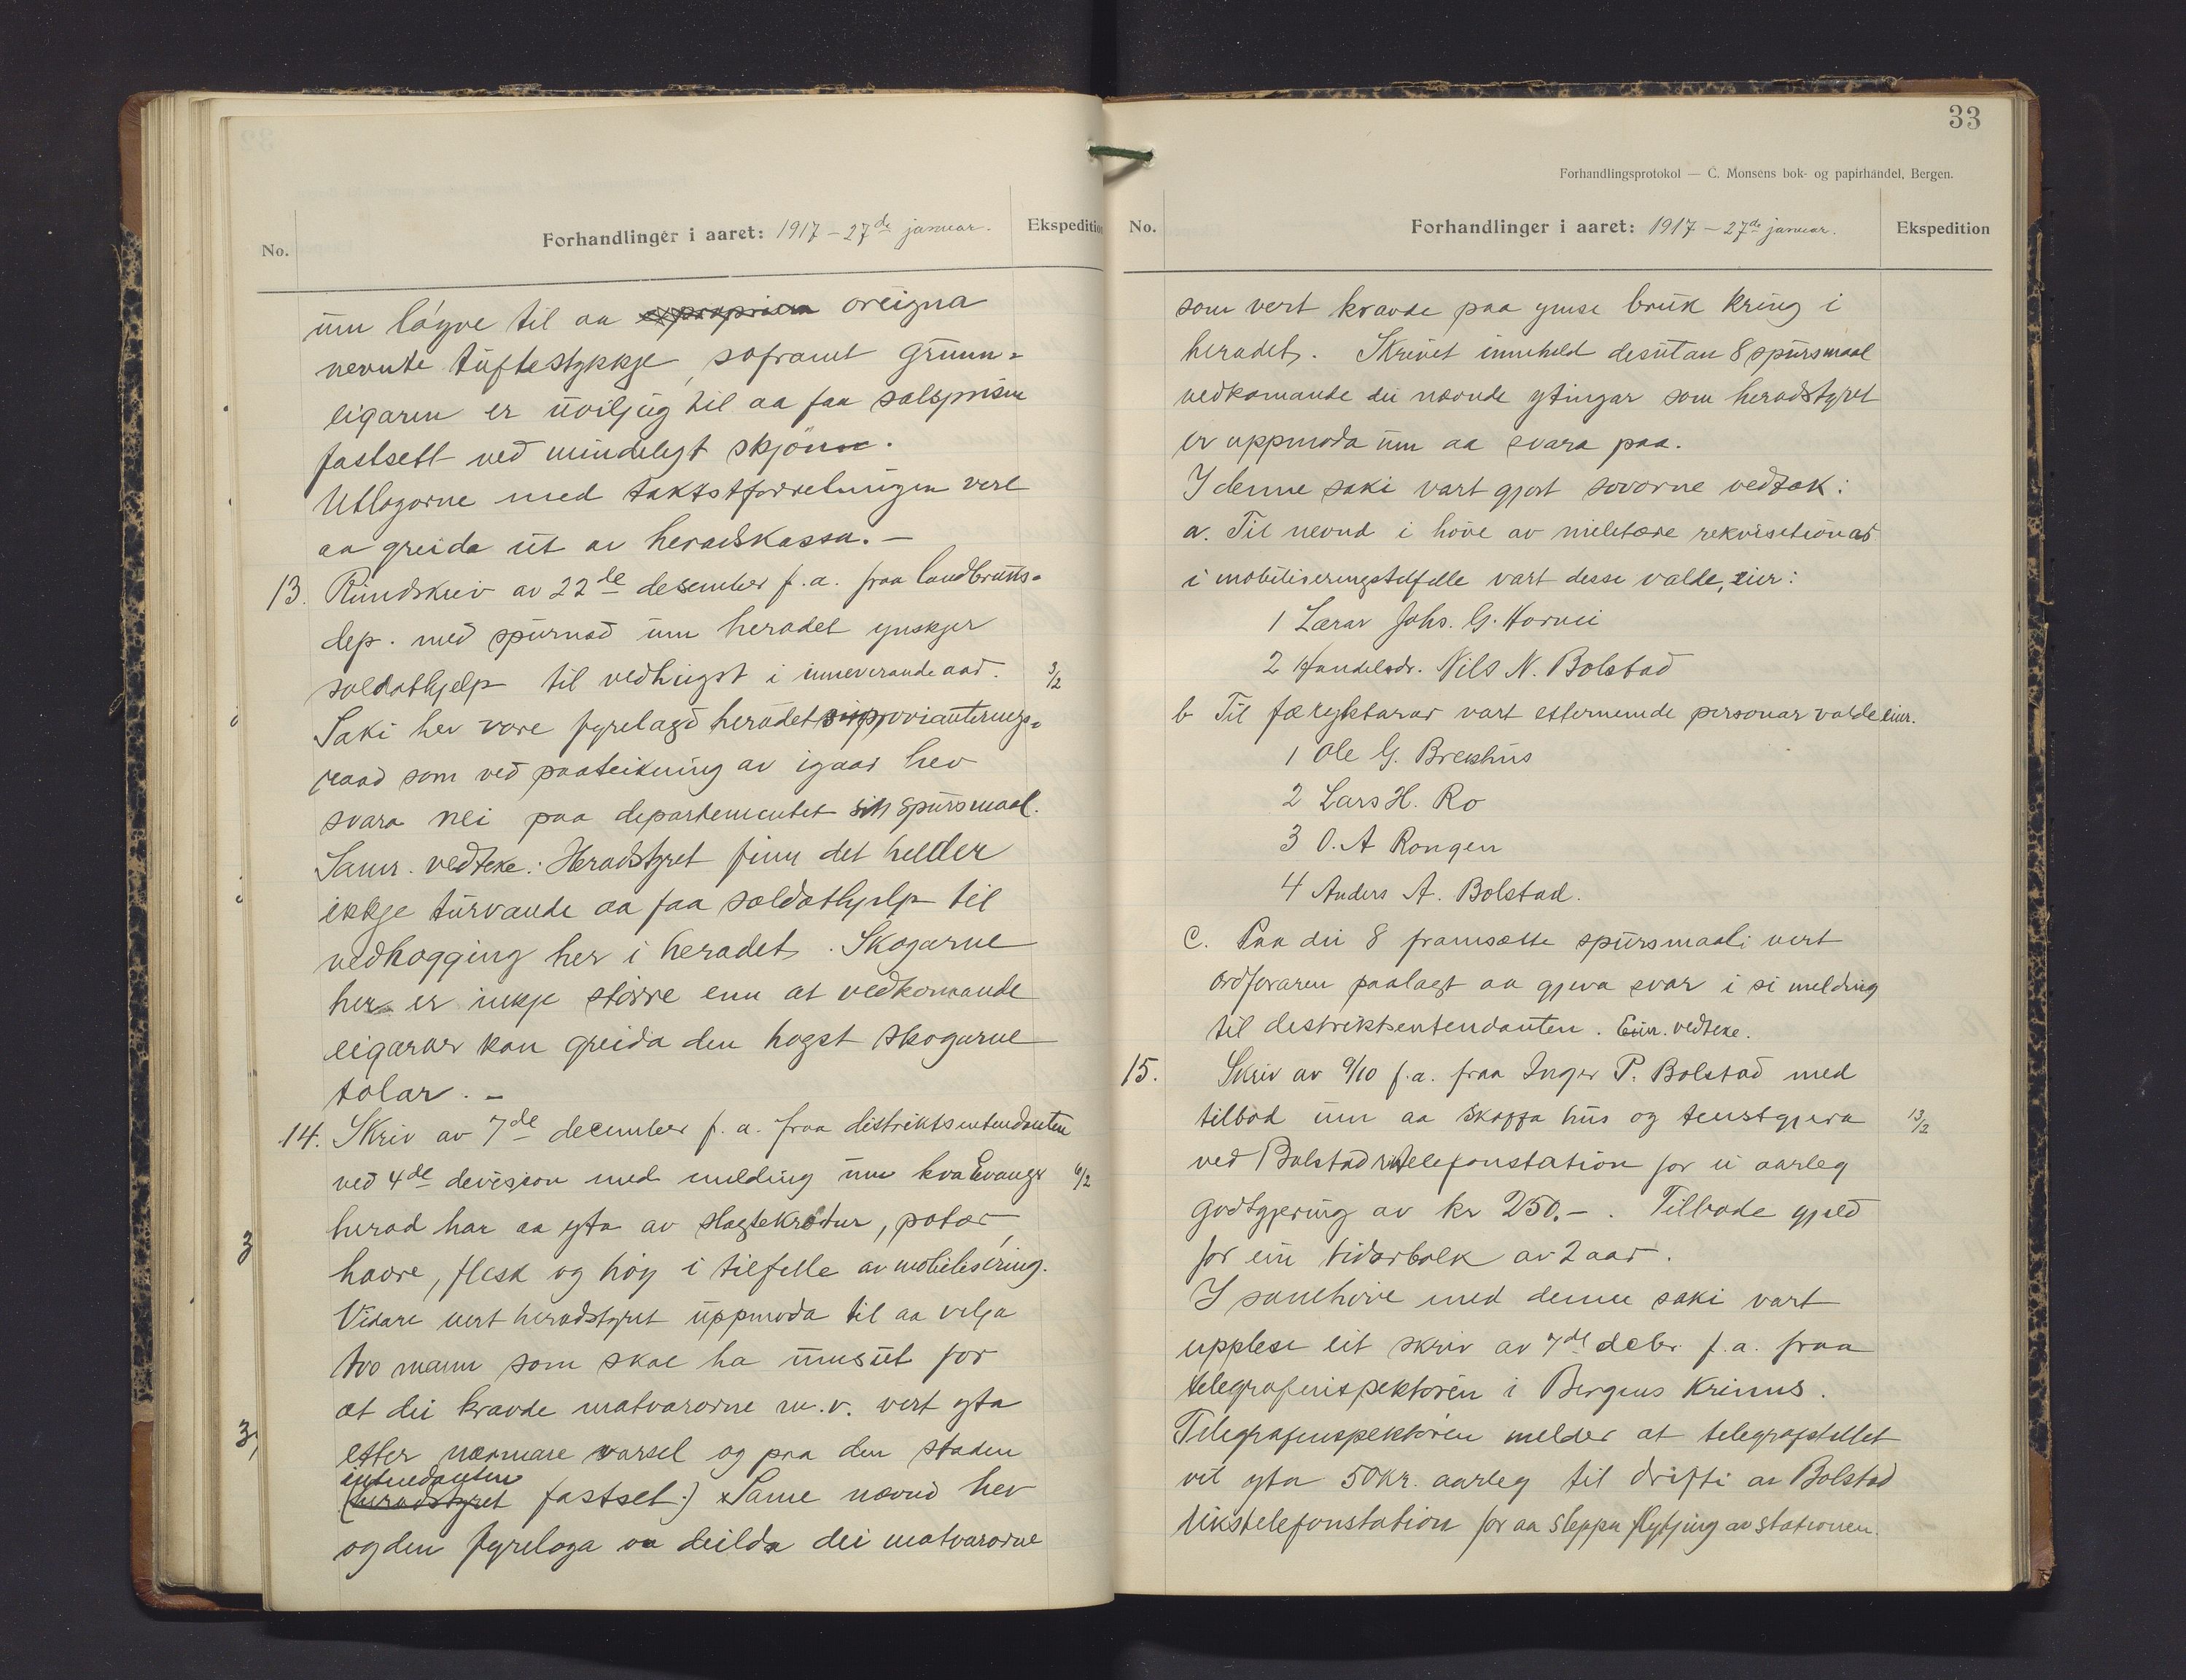 No.
Forhandlinger i aaret: 1917 – 27de januar.
Ekspedition
um løyve til aa expropriera oreigna
nevnte tuftestykkje, soframt grunn-
eigaren er uviljug til aa faa salsprisen
fastsett ved mindelegt skjönn.
Utlogorne med takstforretningen vert
aa greida ut av heradskassa. –
13. Rundskriv av 22de desember f.a. fraa landbruks-
dep. med spurnad um heradet ynskjer
soldathjelp til vedhugst i inneverande aar.
3/2
Saki hev vore fyrelagd heradets provianterings-
raad som ved paateikning av igaar hev
svara nei paa departementet sitt spursmaal.
Samr. vedteke: Heradstyret finn det helder
ikkje turvande aa faa soldathjelp til
vedhogging her i heradet. Skogarne
her er inkje större enn at vedkomande
eigarar kan greida den hogst skogarne
tolar. –
14. Skriv av 7de december f.a. fraa distriktsintendanten
ved 4de devisjon med melding um kva Evanger
6/2
herad har aa yta av slagtekrøtur, potær,
havre, flesk og höy i tilfelle av mobilisering.
Vidare vert heradstyret uppmoda til aa velja
tvo mann som skal ha umsut for
at dei kravde matvarorne m.v. vert yta
etter nærmare varsel og paa den staden
intendanten
(heradstyret fastset.) Same nævnd hev
ogden fyreloga aa deilda dei matvarorne
33
Forhandlingsprotokol — C. Monsens bok- og papirhandel, Bergen.
No.
Forhandlinger i aaret: 1917 – 27de januar.
Ekspedition
som vert kravde paa ymse bruk kring i
heradet. Skrivet inneheld desutan 8 spursmaal
vedkomande dei nævnde ytingar som heradstyret
er uppmoda um aa svara paa.
I denne saki vart gjort sovorne vedtak:
a. Til nevnd i höve av militære rekvisitionar
i mobiliseringstilfelle vart desse valde, eier:
1 Lærar Johs. G. Horvei
2 Handelsdr. Nils N. Bolstad
b Til fæ røktarar vart efternemde personar valde eier.
1 Ole G. Brekhus
2 Lars H. Ro
3 O. A Rongen
4 Anders A. Bolstad.
C. Paa dei 8 framsætte spursmaali vert
ordföraren paalagt aa gjeva svar i si melding
til destriktsentendanten. Eier. vedteke.
15. Skriv av 9/10 f.a. fraa Inger P. Bolstad med
tilbod um aa skaffa hus og tenestgjera
13/2
ved Bolstad rikstelefonstation for ei aarleg
godtgjering av kr 250.–. Tilbode gjeld
for ein tidarbolk av 2 aar.
I samhöve med denne saki vart
upplese eit skriv av 7de debr. f.a. fraa
telegrafinspektören i Bergens Krinns.
Telegrafenspektören melder at telegrafstellet
vil yta 50 kr. aarleg til drifti av Bolstad
rikstelefonstation for aa sleppa flytjing av stationen.